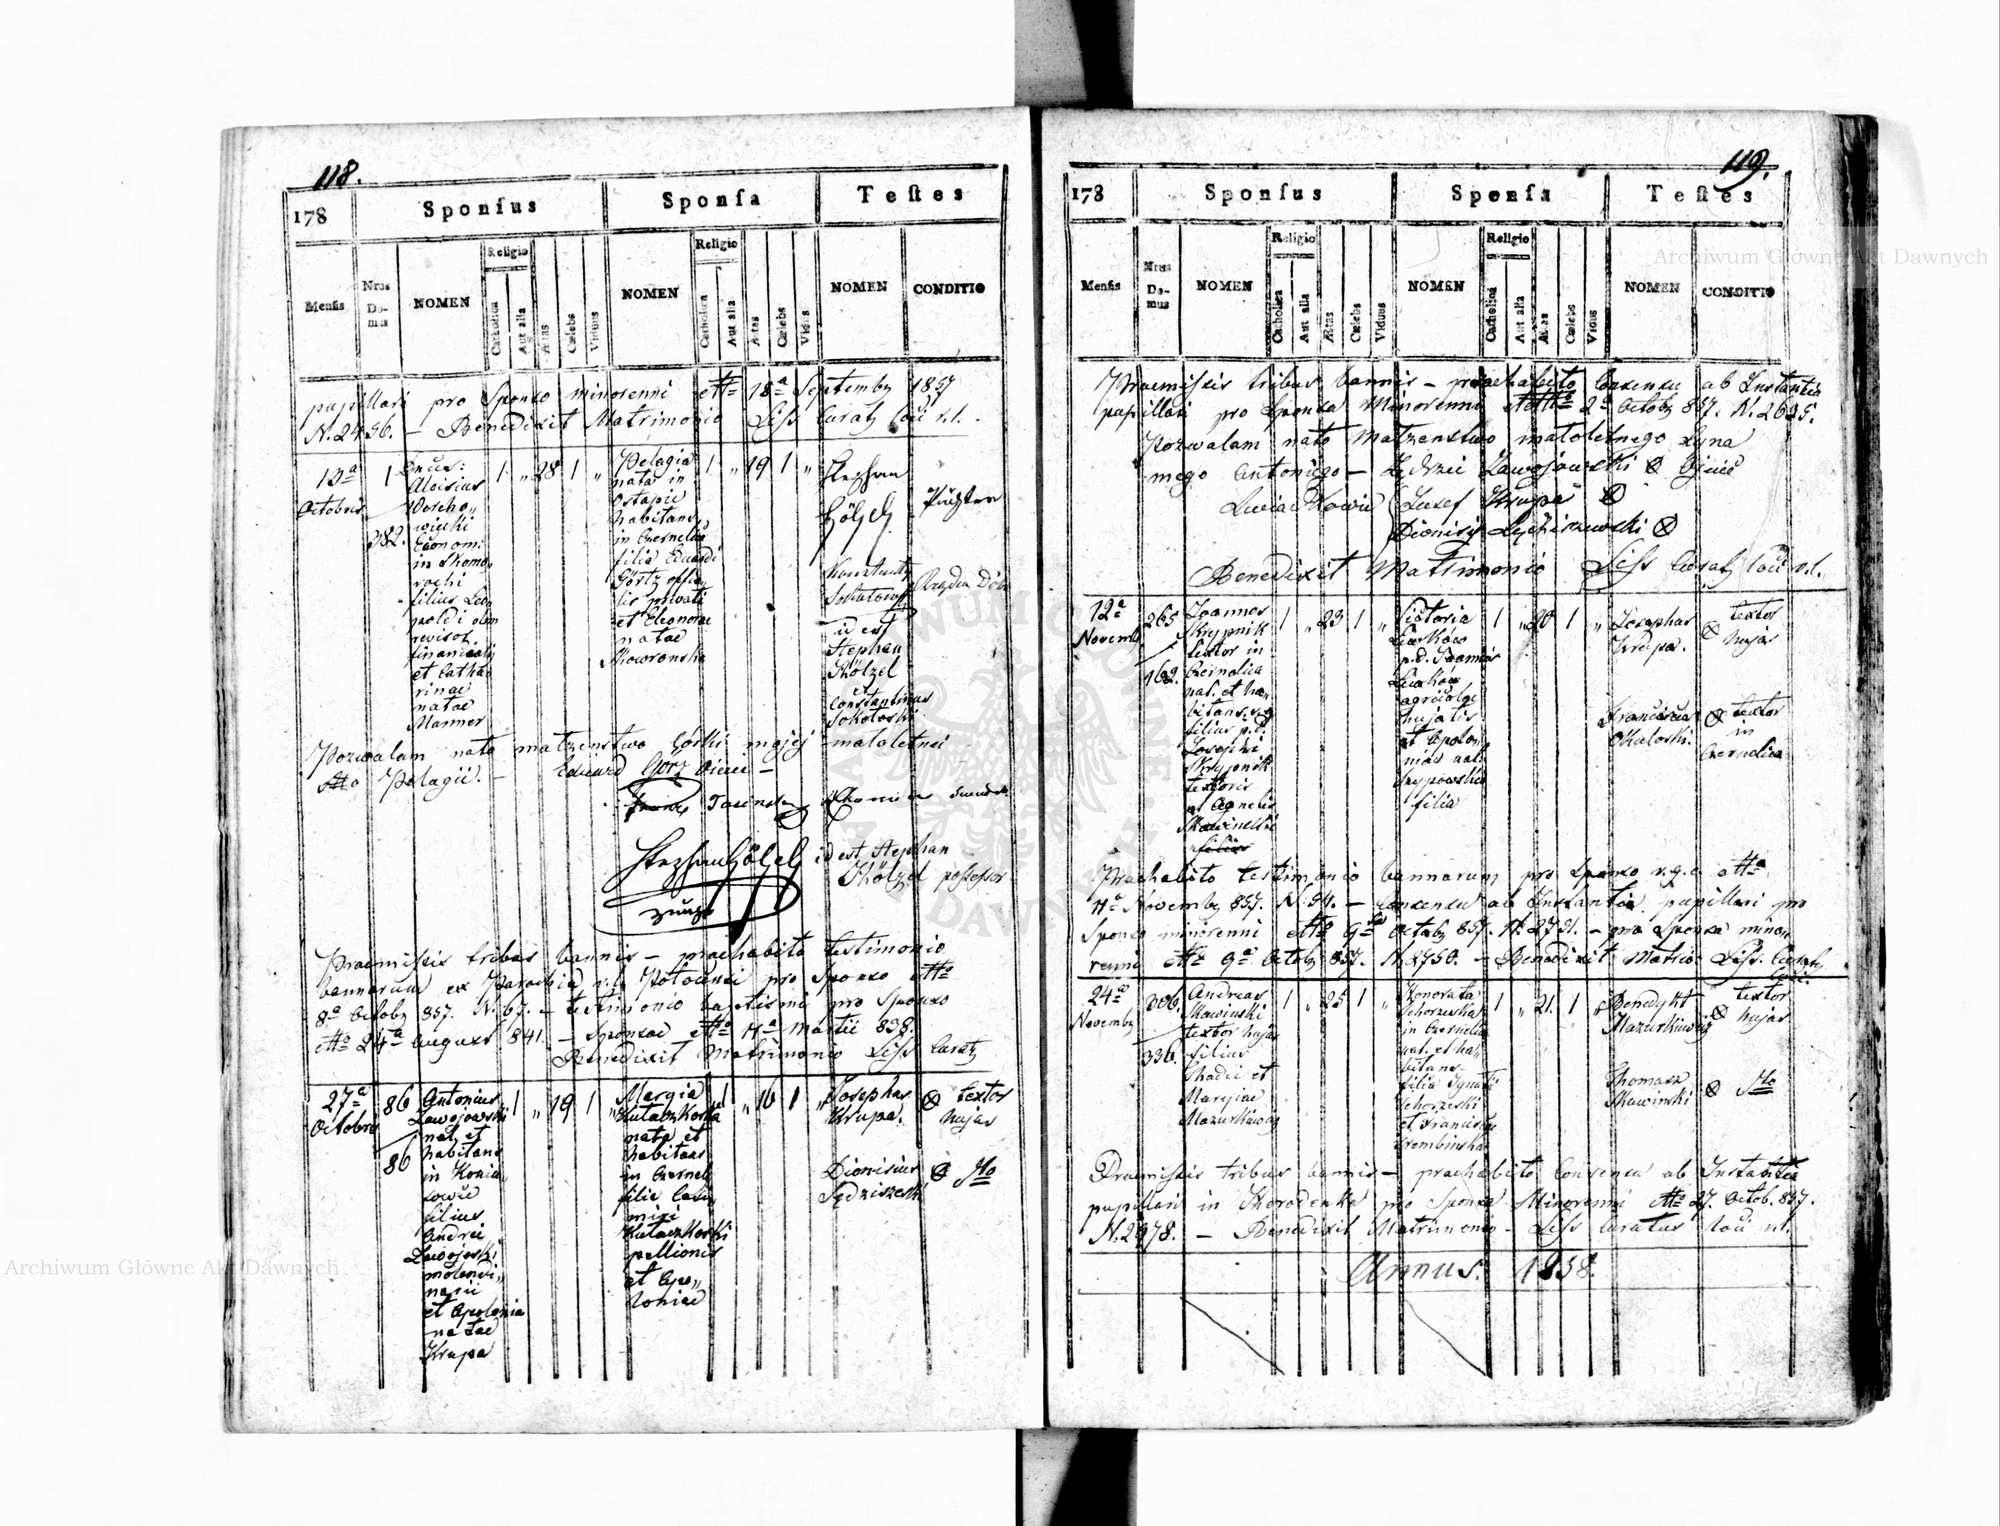 118.
178
Sponſus
Sponſa
Teſtes
Menſis
Nrus Do- mus
NOMEN
Religio
Catholica
Aut alia
Ætas
Cœlebs
Viduus
NOMEN
Religio
Catholica
Aut alia
Ætas
Cœlebs
Vidua
NOMEN
CONDITIO
pupillari pro Sponso minorenni dtto 18a Septembr 1857
N. 2456. — Benedixit Matrimonio Liss Curaty loci r.l.
13a
Octobris
1
382.
Aloisius
Econom:
in Skomo,
rochi
filius Leo,
poldi olim
revisor.
financialis
et Catha,
rinae
natae
Manner
1 „ 28 1 „
Pelagia
nata in
Ostapie
habitans
in Czernelica
filia Eduardi
Görtz offici,
lis privati
et Eleonorae
natae
Skowronska
1 „ 19 1 „
Stephan
Hölzel
Pächter
Konstanty
Sokołowski
id est
Stephan
Hölzel
et
Constantinus
Sokołoski
Pozwalam na to małzenstwo Córki mojej małoletnei
Pelagii. — Edward Görz Oiciec —
Stephan Hölzel id est Stephan
Hölzel possessor
Praemissis tribus bannis — praehabito testimonio
bannorum ex Parochia r.l. Potoczisci pro Sponso dtto
8a Octobr 857. N. 67. — testimonio baptismi pro Sponso
dtto 24a August 841. — Sponsae dtto 11a Martii 838.
Benedixit Matrimonio Liss Curaty
27a
Octobris
86
86
Antonius
Zawojowski
nat. et
habitans
in Konia,
towie
filius
Andrei
Zawojoski
molendi,
narii
et Apolonia
natae
Krupa
1 „ 19 1 „
Maryia
Kutaczkoska
nata et
habitans
in Czernel
filia Casi,
miri
Kutaczkoski
pellionis
et Apo,
loniae
1 „ 16 1 „
Josephus
Krupa.
textor
hujas
Dionisius
Sędziszeski
dtto
119.
178
Sponſus
Sponſa
Teſtes
Menſis
Nrus Do- mus
NOMEN
Religio
Catholica
Aut alia
Ætas
Cœlebs
Viduus
NOMEN
Religio
Catholica
Aut alia
Ætas
Cœlebs
Vidua
NOMEN
CONDITIO
Praemissis tribus bannis — praehabito Consensu ab Instantia
pupillari pro Sponsa Minorenni dtto 2a Octobr 857. N. 2635.
Pozwalam na to Małzenstwo małoletnego Syna
mego Antoniego — Jędrzei Zawojowski Ojciec
Jusef Krupa
Dionisy
Benedixit Matrimonio Liss Curaty loci r.l.
12a
Novembr
265
162.
Joannes
Skrypnik
textor in
Czernelica
nat. et ha,
bitans r.g.
filius p.d.
Josephi
Skrypnik
textoris
et Agnetis
Skawinski
filius
1 „ 23 1 „
Victoria
Laskow
p.d. Joannis
agricolae
hujatis
et Apolon,
niae nat.
filia
1 „ 20 1 „
Josephus
Krupa.
textor
hujas
Franciscus
Okuloski.
textor
in
Czernelica
Praehabito testimonio bannorum pro Sponso r.g.c. dtto
11a Novembr 857. N. 94. — Consensu ab Instantia pupillari pro
Sponso minorenni dtto 9a Octobr 857. N. 2751. — pro Sponsa mino,
renni dtto 9a Octobr 857. N. 2750. — Benedixit Matrio: Liss. Curaty
loci
24a
Novembr
306.
336.
Andreas
Skawinski
textor hujas
filius
Thadei et
Maryiae
Mazurkiewicz
1 „ 25 1 „
Honorata
Schorzeska
in Czernelica
nat. et ha,
bitans
filia Ignatii
Schorzeski
et Francisca
Trembinska
1 „ 21. 1 „
Benedykt
Mazurkiewicz
textor
hujas
Thomasz
Skawinski
dtto
Praemissis tribus bannis — praehabito Consensu ab Instantia
pupillari in Horodenka pro Sponsa Minorenni dtto 27. Octob. 857.
N. 2978. — Benedixit Matrimonio — Liss Curatus loci r.l.
Annus. 1858.
Archiwum Główne Akt Dawnych
Archiwum Główne Akt Dawnych
ARCHIWUM GŁÓWNE AKT DAWNYCH